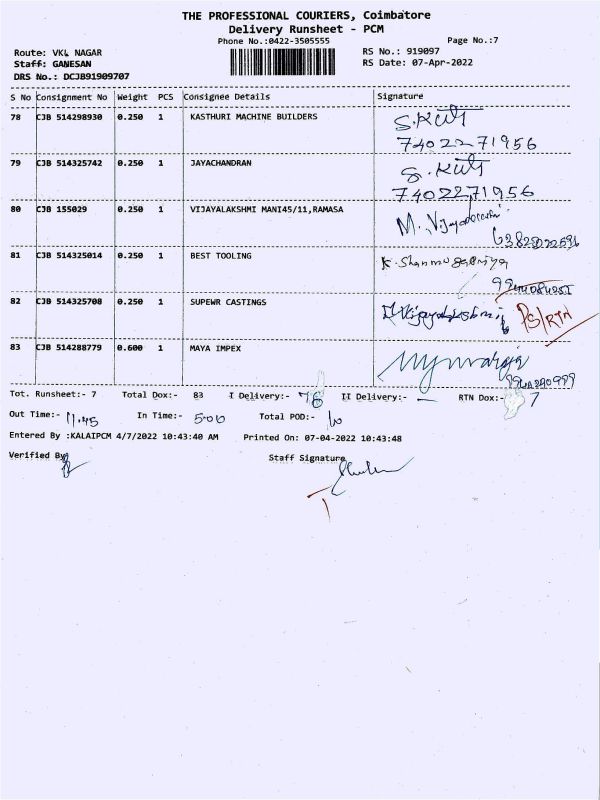 THE PROFESSIONAL COURIERS, Coimbatore
Delivery Runsheet - PCM
Phone No.:0422-3505555 Page No.:7
Route: VKL NAGAR RS No.: 919097
Staff: GANESAN RS Date: 07-Apr-2022
DRS No.: DCJB91909707
S No Consignment No Weight PCS Consignee Details Signature
78 CJB 514298930 0.250 1 KASTHURI MACHINE BUILDERS
7402271956
79 CJB 514325742 0.250 1 JAYACHANDRAN
7402271956
80 CJB 155029 0.250 1 VIJAYALAKSHMI MANI45/11,RAMASA
81 CJB 514325014 0.250 1 BEST TOOLING K. Shanmugapriya
82 CJB 514325708 0.250 1 SUPEWR CASTINGS PS/RTN
83 CJB 514288779 0.600 1 MAYA IMPEX
Tot. Runsheet:- 7 Total Dox:- 83 I Delivery:- 76 II Delivery:- — RTN Dox:- 7
Out Time:- 11.45 In Time:- 5.00 Total POD:-
Entered By :KALAIPCM 4/7/2022 10:43:40 AM Printed On: 07-04-2022 10:43:48
Verified By Staff Signature